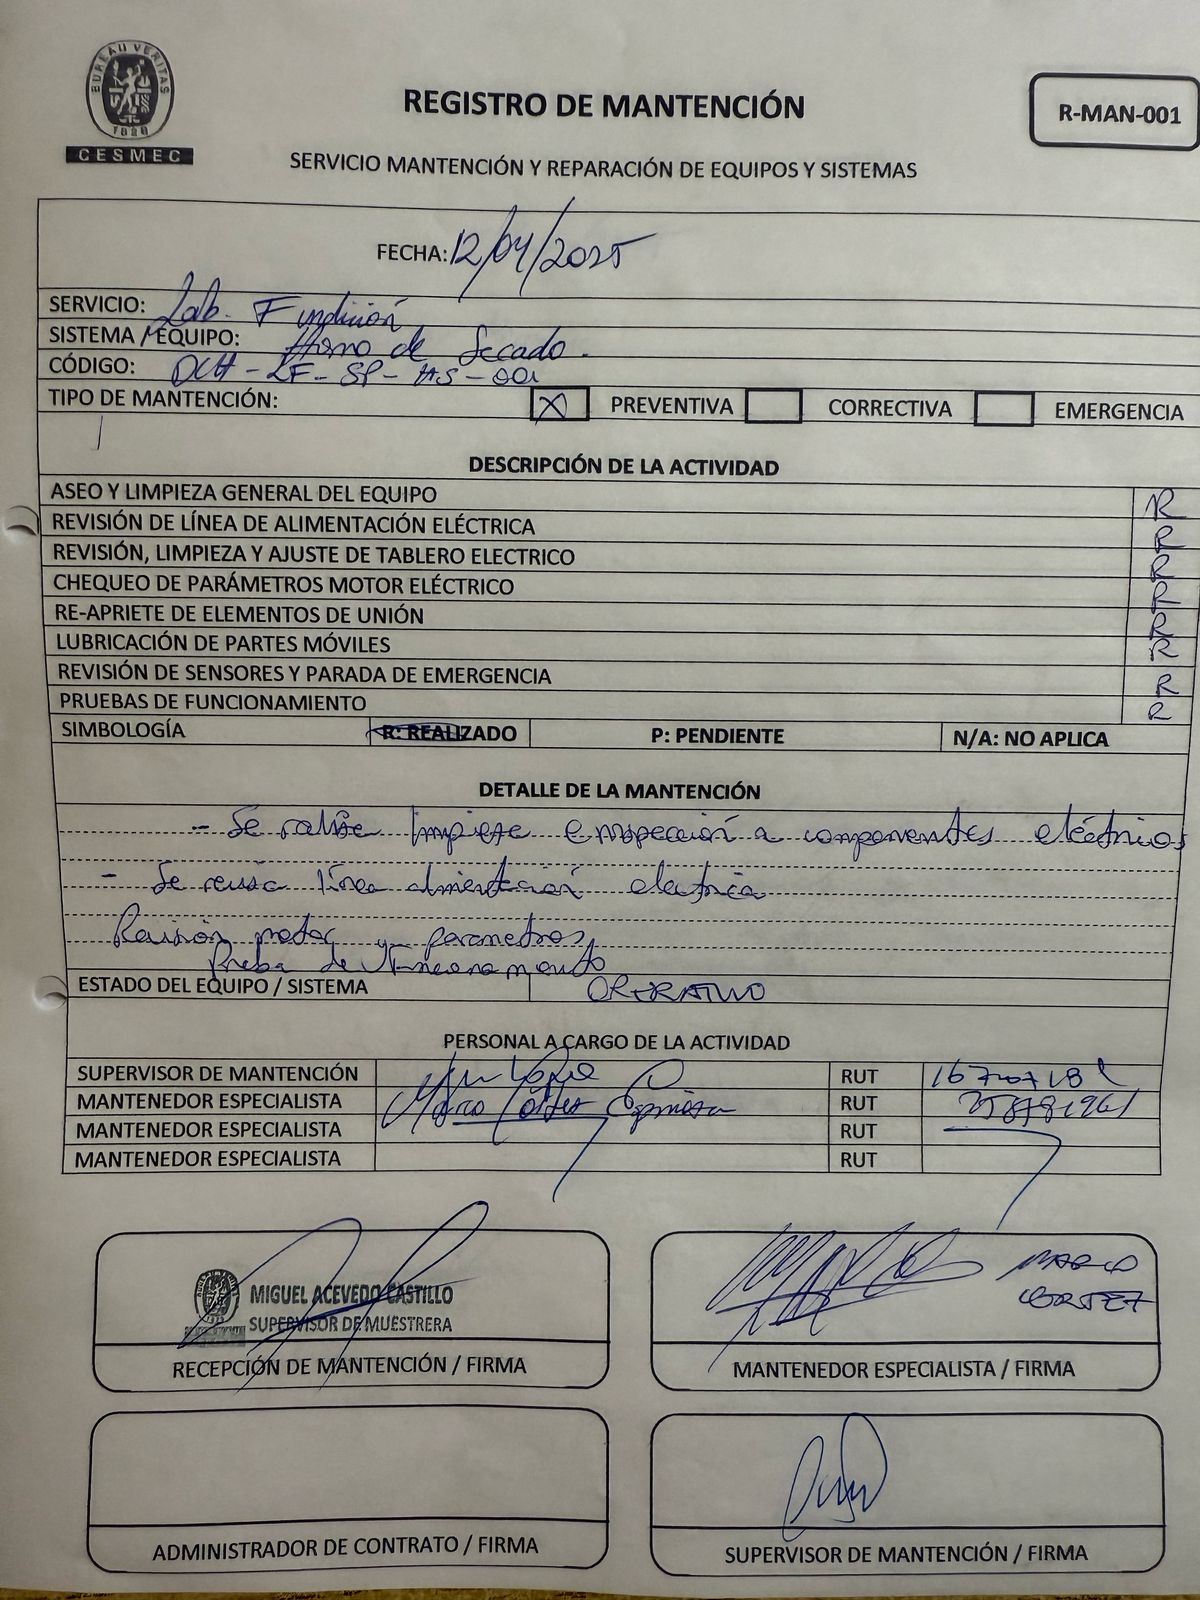 BUREAU VERITAS
1828
CESMEC
REGISTRO DE MANTENCIÓN
R-MAN-001
SERVICIO MANTENCIÓN Y REPARACIÓN DE EQUIPOS Y SISTEMAS
FECHA: 12/04/2025
SERVICIO: Lab. Fundición
SISTEMA / EQUIPO: Horno de Secado.
CÓDIGO: DCH - LF - SP - HS - 001
TIPO DE MANTENCIÓN: X PREVENTIVA CORRECTIVA EMERGENCIA
DESCRIPCIÓN DE LA ACTIVIDAD
ASEO Y LIMPIEZA GENERAL DEL EQUIPO R
REVISIÓN DE LÍNEA DE ALIMENTACIÓN ELÉCTRICA R
REVISIÓN, LIMPIEZA Y AJUSTE DE TABLERO ELECTRICO R
CHEQUEO DE PARÁMETROS MOTOR ELÉCTRICO R
RE-APRIETE DE ELEMENTOS DE UNIÓN R
LUBRICACIÓN DE PARTES MÓVILES R
REVISIÓN DE SENSORES Y PARADA DE EMERGENCIA R
PRUEBAS DE FUNCIONAMIENTO R
SIMBOLOGÍA R: REALIZADO P: PENDIENTE N/A: NO APLICA
DETALLE DE LA MANTENCIÓN
- Se realiza limpieza e inspección a componentes eléctricos
- Se revisa línea alimentación electrica
Revisión motor y parametros
Prueba de funcionamiento
ESTADO DEL EQUIPO / SISTEMA OPERATIVO
PERSONAL A CARGO DE LA ACTIVIDAD
SUPERVISOR DE MANTENCIÓN RUT
MANTENEDOR ESPECIALISTA Marco Cortes Espinosa RUT
MANTENEDOR ESPECIALISTA RUT
MANTENEDOR ESPECIALISTA RUT
MIGUEL ACEVEDO CASTILLO
SUPERVISOR DE MUESTRERA
RECEPCIÓN DE MANTENCIÓN / FIRMA
MARCO
CORTEZ
MANTENEDOR ESPECIALISTA / FIRMA
ADMINISTRADOR DE CONTRATO / FIRMA
SUPERVISOR DE MANTENCIÓN / FIRMA